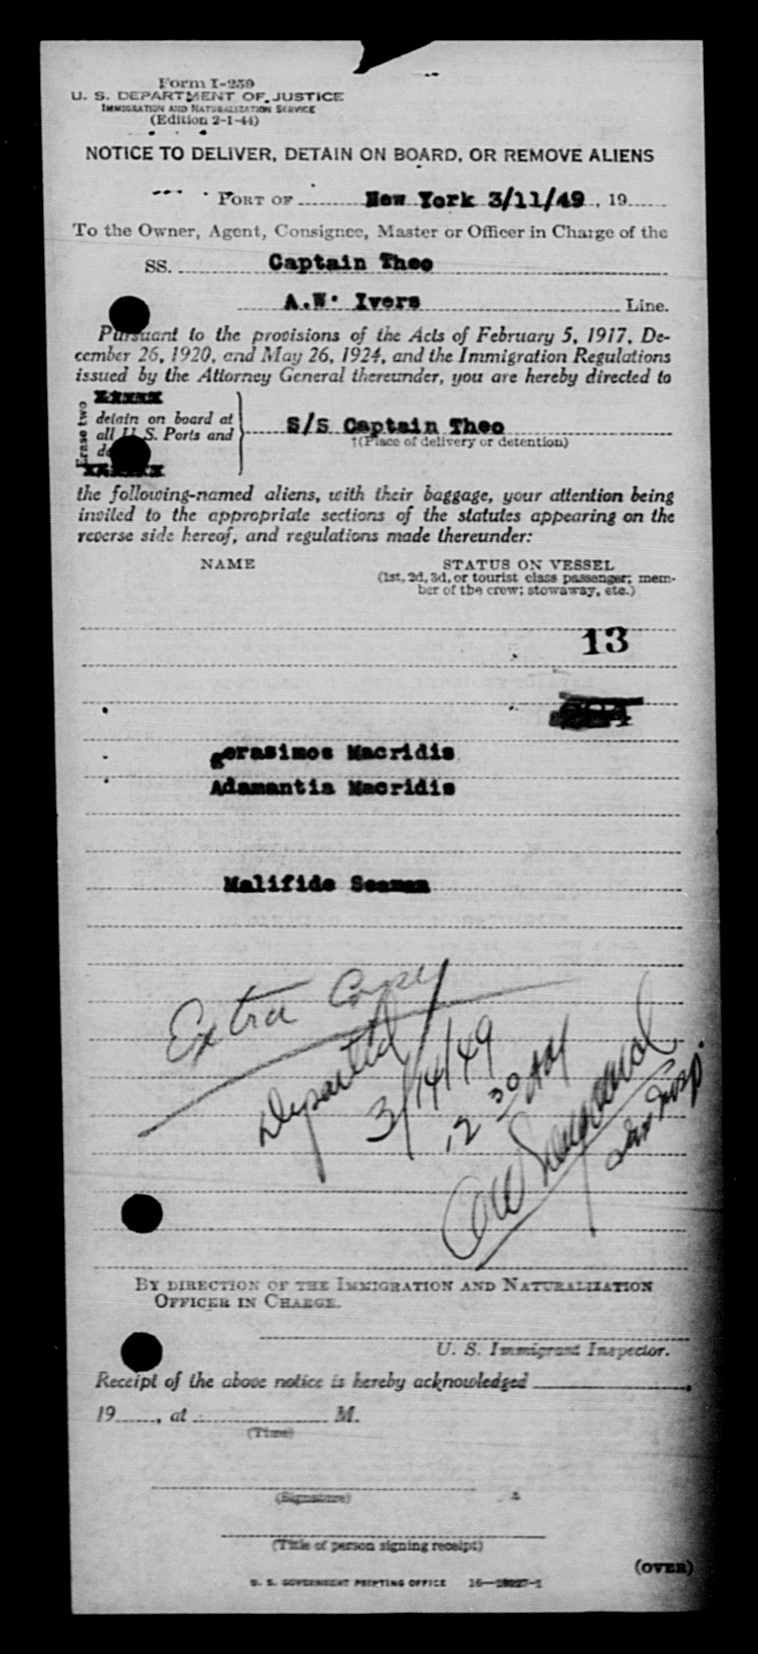 Form I-259
U. S. DEPARTMENT OF JUSTICE
IMMIGRATION AND NATURALIZATION SERVICE
(Edition 2-1-44)
NOTICE TO DELIVER, DETAIN ON BOARD, OR REMOVE ALIENS
PORT OF New York 3/11/49, 19
To the Owner, Agent, Consignee, Master or Officer in Charge of the
SS. Captain Theo
A.W. Ivers Line.
Pursuant to the provisions of the Acts of February 5, 1917, De-
cember 26, 1920, and May 26, 1924, and the Immigration Regulations
issued by the Attorney General thereunder, you are hereby directed to
Erase two
xxxxx
detain on board at
all U.S. Ports and
S/S Captain Theo
†(Place of delivery or detention)
xxxxxx
the following-named aliens, with their baggage, your attention being
invited to the appropriate sections of the statutes appearing on the
reverse side hereof, and regulations made thereunder:
NAME STATUS ON VESSEL
(1st, 2d, 3d, or tourist class passenger; mem-
ber of the crew; stowaway, etc.)
13
gerasimos Macridis
Adamantia Macridis
Malifide Seaman
Extra Copy
Departed
3/14/49
12 30 AM
BY DIRECTION OF THE IMMIGRATION AND NATURALIZATION
OFFICER IN CHARGE.
U. S. Immigrant Inspector.
Receipt of the above notice is hereby acknowledged
19, at M.
(Time)
(Signature)
(Title of person signing receipt)
(OVER)
U. S. GOVERNMENT PRINTING OFFICE